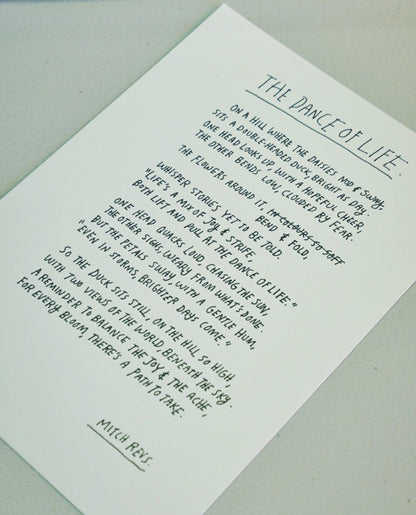 THE DANCE OF LIFE.
ON A HILL WHERE THE DAISIES NOD & SWAY,
SITS A DOUBLE-HEADED DUCK, BRIGHT AS DAY.
ONE HEAD LOOKS UP, WITH A HOPEFUL CHEER,
THE OTHER BENDS LOW, CLOUDED BY FEAR.
THE FLOWERS AROUND IT, BEND & FOLD,
WHISPER STORIES YET TO BE TOLD.
"LIFE'S A MIX OF JOY & STRIFE,
BOTH LIFT AND PULL AT THE DANCE OF LIFE."
ONE HEAD QUACKS LOUD, CHASING THE SUN,
THE OTHER SIGHS, WEARY FROM WHAT'S DONE.
BUT THE PETALS SWAY, WITH A GENTLE HUM,
"EVEN IN STORMS, BRIGHTER DAYS COME."
SO THE DUCK SITS STILL, ON THE HILL SO HIGH,
WITH TWO VIEWS OF THE WORLD, BENEATH THE SKY.
A REMINDER TO BALANCE THE JOY & THE ACHE,
FOR EVERY BLOOM, THERE'S A PATH TO TAKE.
MITCH REVS.